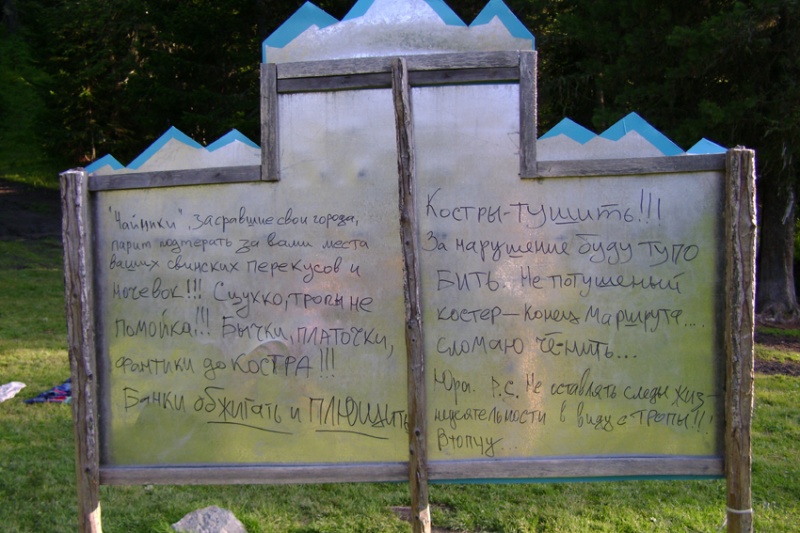 "Чайники", засравшие свои города,
парит подтерать за вами места
ваших свинских перекусов и
ночевок!!! Сцукко, тропы не
помойка!!! Бычки, платочки,
фантики до КОСТРА!!!
Банки обжигать и ПЛЮЩить
Костры-тушить!!!
За нарушение буду тупо
БИТЬ. Не потушеный
костер-конец маршрута....
сломаю че-нить...
Юра. P.S. Не оставлять следы жиз-
недеятельности в виду с тропы!!,
Втопчу...